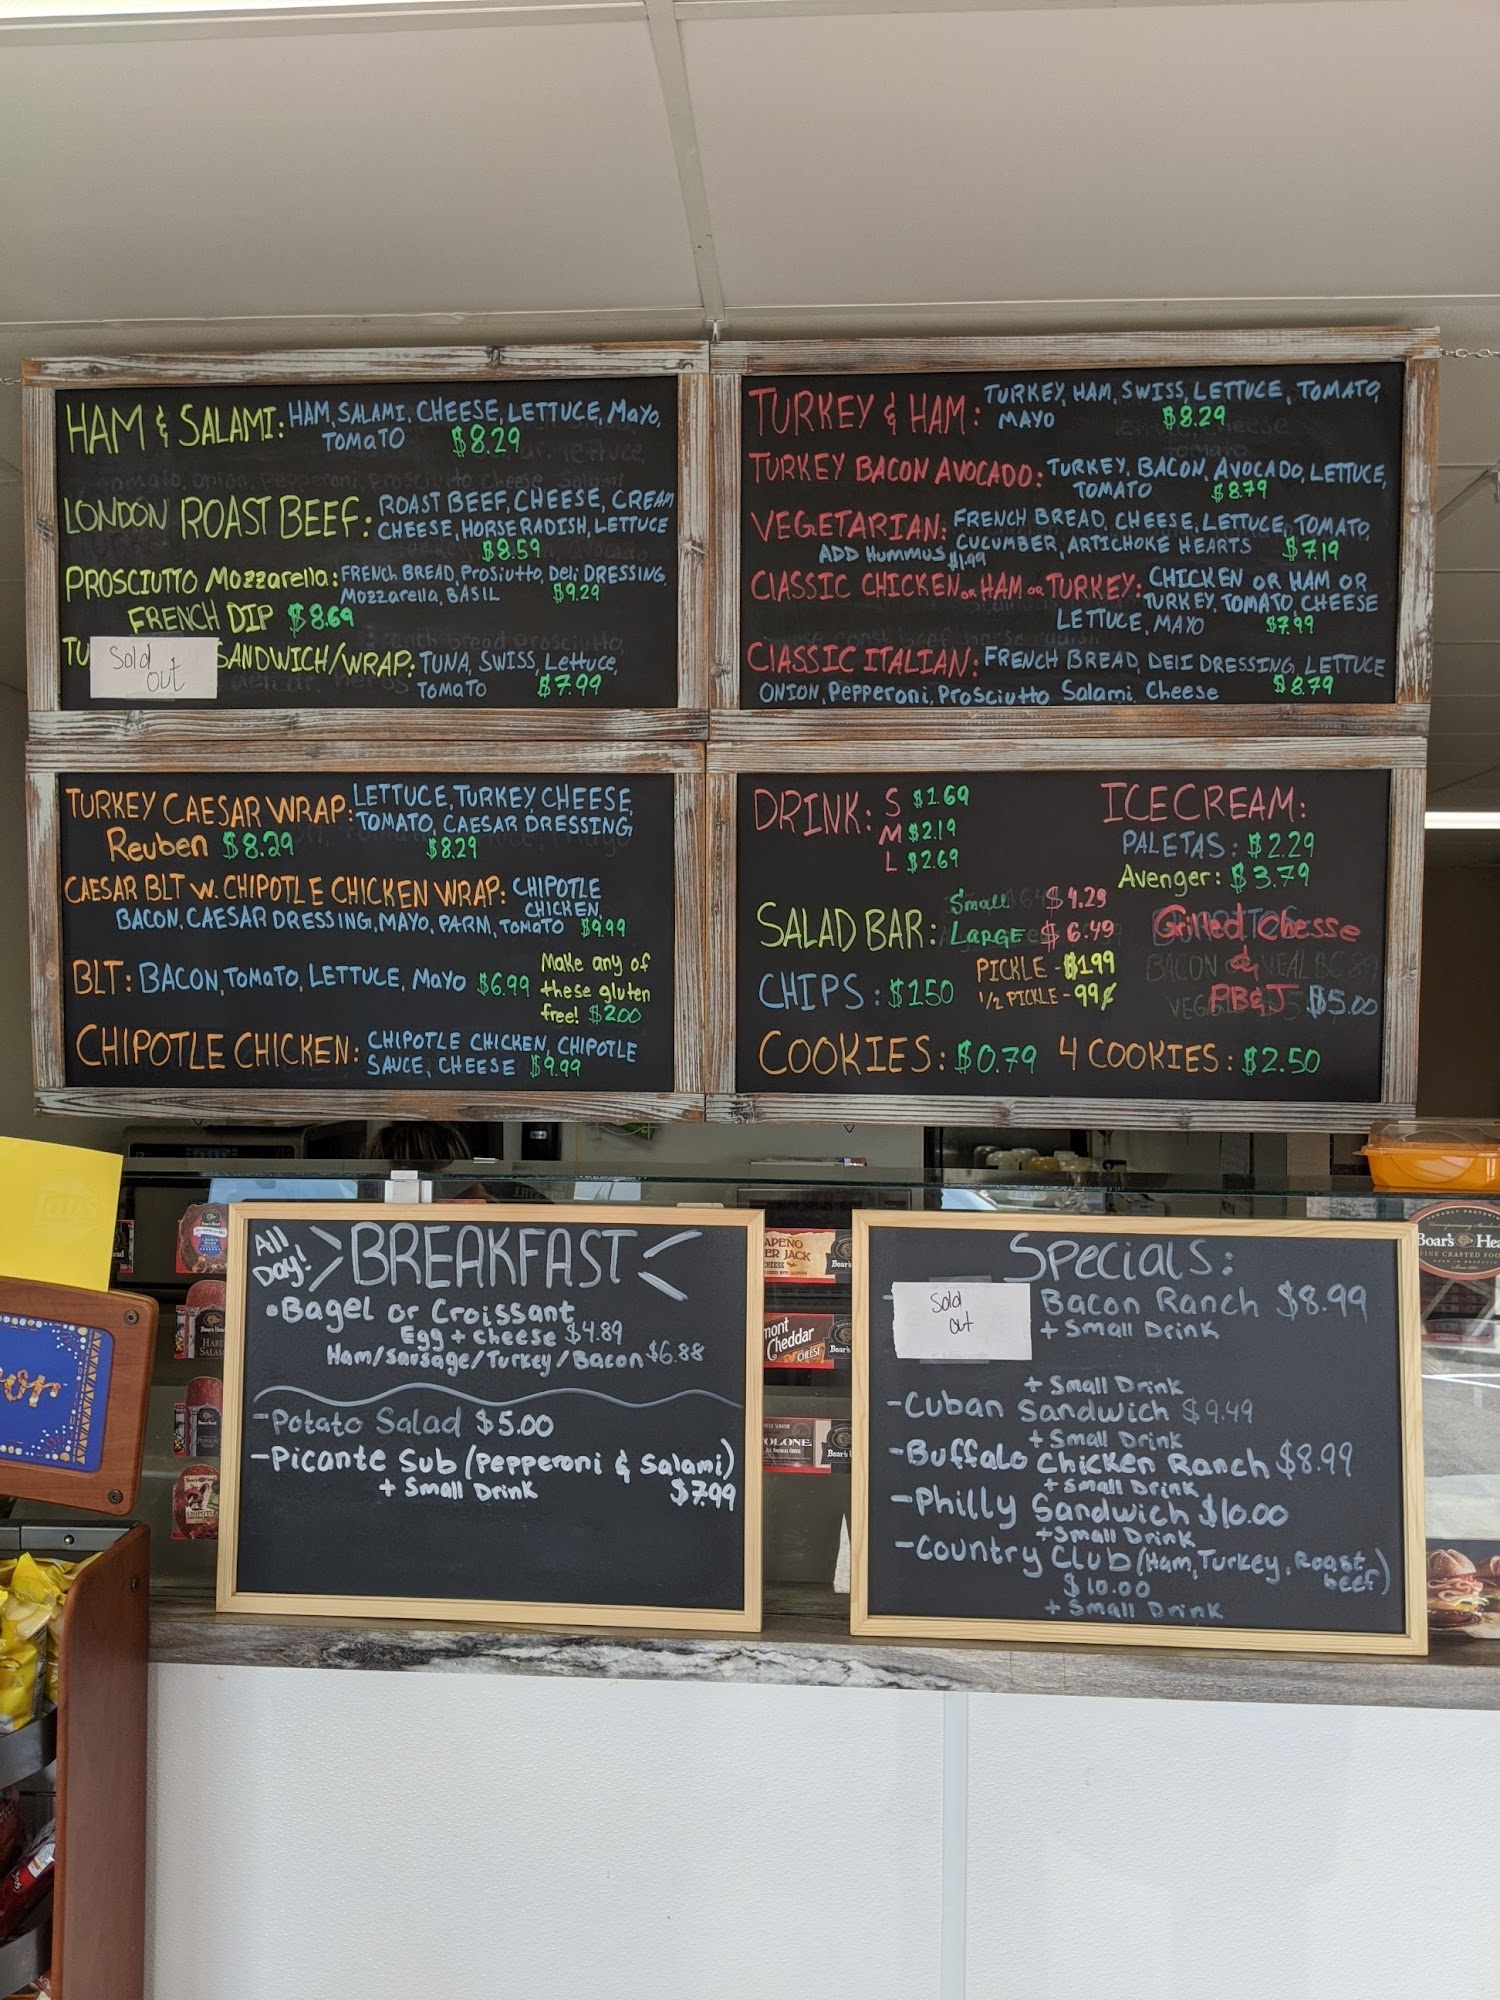 HAM & SALAMI: HAM, SALAMI, CHEESE, LETTUCE, MaYo,
TOMATO $8.29
LONDON ROAST BEEF: ROAST BEEF, CHEESE, CREAM
CHEESE, HORSERADISH, LETTUCE
$8.59
PROSCIUTTO Mozzarella: FRENCH BREAD, Prosiutto, Deli DRESSING,
Mozzarella, BASIL $9.29
FRENCH DIP $8.69
TU SANDWICH/WRAP: TUNA, SWISS, Lettuce,
Sold
out
TOMATO $7.99
TURKEY & HAM: TURKEY, HAM, SWISS, LETTUCE, TOMATO,
MAYO $8.29
TURKEY BACON AVOCADO: TURKEY, BACON, AVOCADO, LETTUCE,
TOMATO $8.79
VEGETARIAN: FRENCH BREAD, CHEESE, LETTUCE, TOMATO,
CUCUMBER, ARTICHOKE HEARTS $7.19
ADD HummuS $1.99
CLASSIC CHICKEN OR HAM OR TURKEY: CHICKEN OR HAM OR
TURKEY, TOMATO, CHEESE
LETTUCE, MAYO $7.99
CLASSIC ITALIAN: FRENCH BREAD, DELI DRESSING, LETTUCE
ONION, Pepperoni, Prosciutto Salami Cheese $8.79
TURKEY CAESAR WRAP: LETTUCE, TURKEY, CHEESE,
TOMATO, CAESAR DRESSING
Reuben $8.29 $8.29
CAESAR BLT W. CHIPOTLE CHICKEN WRAP: CHIPOTLE
CHICKEN,
BACON, CAESAR DRESSING, MAYO, PARM, TOMATO $9.99
BLT: BACON, TOMATO, LETTUCE, MAYO $6.99
Make any of
these gluten
free! $2.00
CHIPOTLE CHICKEN: CHIPOTLE CHICKEN, CHIPOTLE
SAUCE, CHEESE $9.99
DRINK: S $1.69
M $2.19
L $2.69
ICECREAM:
PALETAS: $2.29
Avenger: $3.79
SALAD BAR: Small $4.29
LARGE $6.49
Grilled Chesse
&
PB&J $5.00
CHIPS: $1.50
PICKLE - $1.99
1/2 PICKLE - 99¢
COOKIES: $0.79 4 COOKIES: $2.50
All
Day! BREAKFAST
•Bagel or Croissant
Egg + cheese $4.89
Ham/sausage/Turkey/Bacon $6.88
-Potato Salad $5.00
-Picante Sub (Pepperoni & Salami)
+ Small Drink $7.99
Specials:
Sold
out
Bacon Ranch $8.99
+ Small Drink
+ Small Drink
-Cuban Sandwich $9.49
+ Small Drink
-Buffalo Chicken Ranch $8.99
+ Small Drink
-Philly Sandwich $10.00
+ Small Drink
-Country Club (Ham, Turkey, Roast
beef)
$10.00
+ Small Drink
Cheddar
CHEESE
Boar's